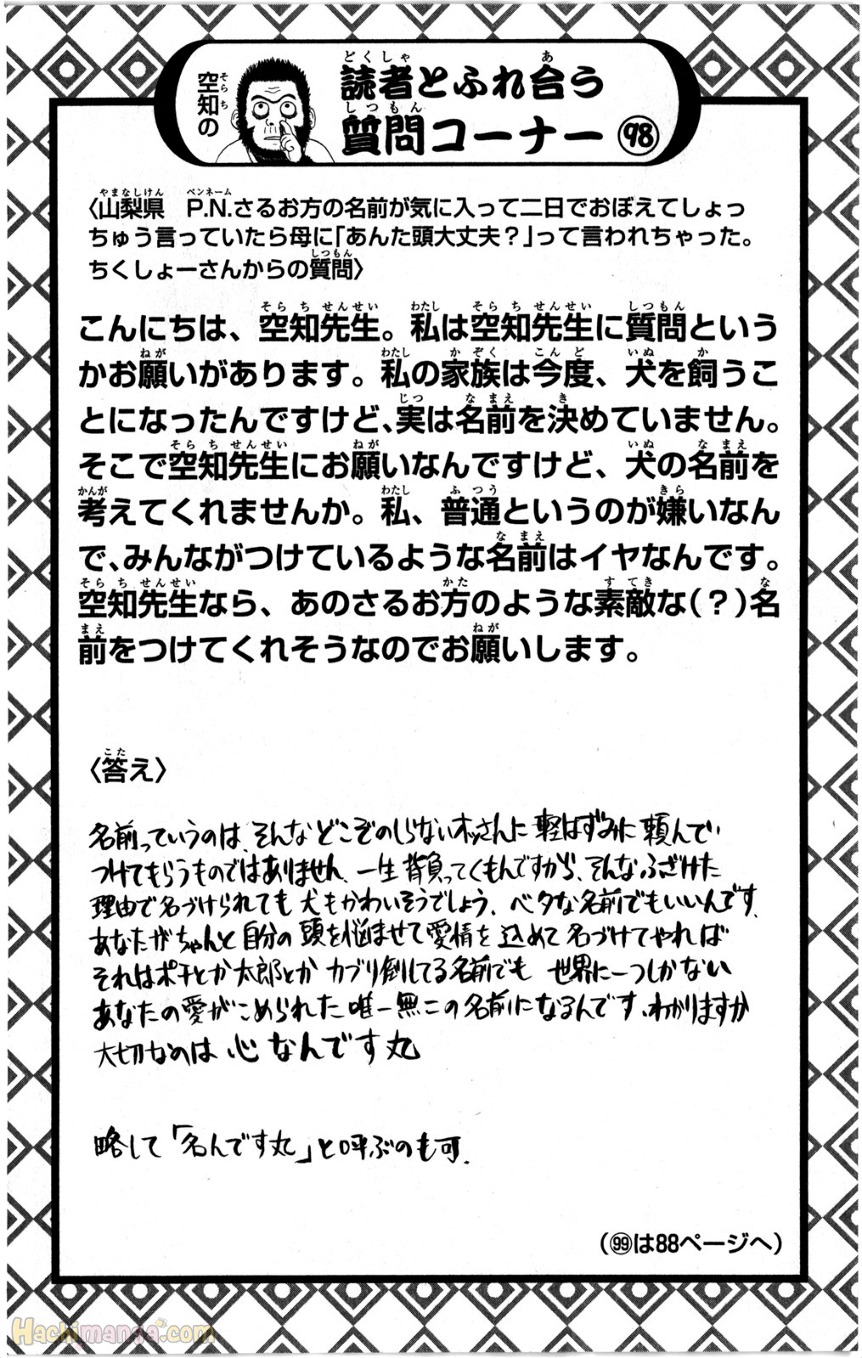 空知の
読者とふれ合う
質問コーナー 98
〈山梨県　P.N.さるお方の名前が気に入って二日でおぼえてしょっ
ちゅう言っていたら母に「あんた頭大丈夫？」って言われちゃった。
ちくしょーさんからの質問〉
こんにちは、空知先生。私は空知先生に質問という
かお願いがあります。私の家族は今度、犬を飼うこ
とになったんですけど、実は名前を決めていません。
そこで空知先生にお願いなんですけど、犬の名前を
考えてくれませんか。私、普通というのが嫌いなん
で、みんながつけているような名前はイヤなんです。
空知先生なら、あのさるお方のような素敵な（？）名
前をつけてくれそうなのでお願いします。
〈答え〉
名前っていうのは、そんなどこぞのしらないオッさんに軽はずみに頼んで
つけてもらうものではありません、一生背負ってくもんですから、そんなふざけた
理由で名づけられても犬もかわいそうでしょう、ベタな名前でもいいんです、
あなたがちゃんと自分の頭を悩ませて愛情を込めて名づけてやれば
それはポチとか太郎とかカブリ倒してる名前でも 世界に一つしかない
あなたの愛がこめられた唯一無二の名前になるんです、わかりますか
大切なのは 心なんです丸
略して「名んです丸」と呼ぶのも可.
（99は88ページへ）
Hachimanga.com